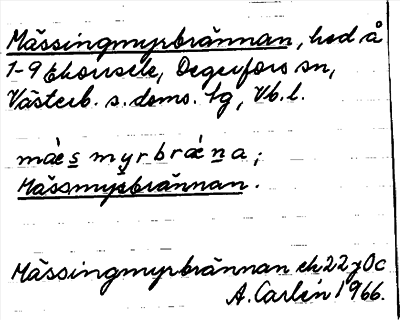 Mässingmyrbrännan, hed å
1-9 Ekorrsele, Degerfors sn,
Västerb. s. doms. tg, Vb. l.
mæ̀s myrbræna;
Mässmyrbrännan.
Mässingmyrbrännan ek 22 y 0c
A. Carlén 1966.